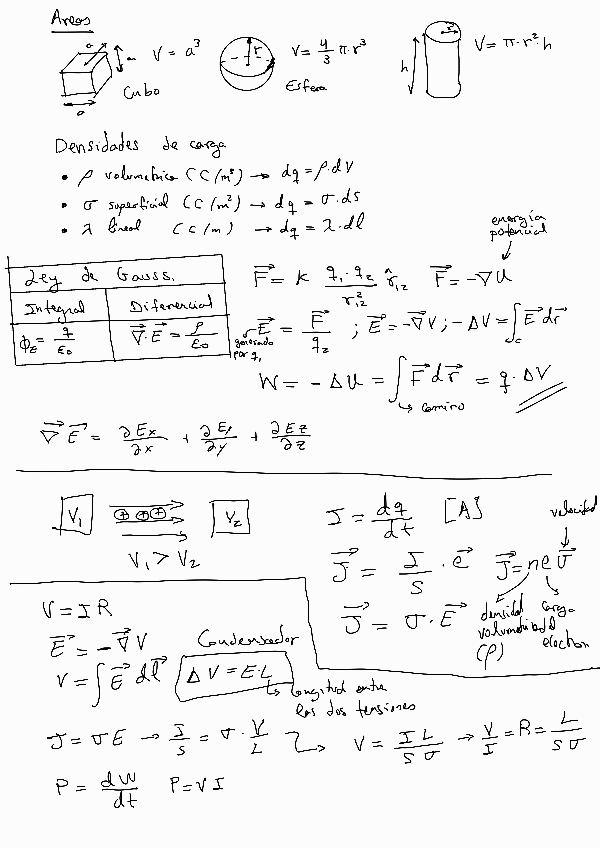 Areas
a a a V = a³ Cubo
r V = 4/3 π·r³ Esfera
h r V = π·r²·h
Densidades de carga
• ρ volumetrica (C/m³) → dq = ρ·dV
• σ superficial (C/m²) → dq = σ·ds
• λ lineal (C/m) → dq = λ·dl
energía potencial
Ley de Gauss.
Integral Diferencial
ϕE = q/ε0 ∇⃗·E⃗ = ρ/ε0
F⃗ = K q1·q2/r12² r̂12 F⃗ = -∇U
generado por q1
E⃗ = F⃗/q2 ; E⃗ = -∇⃗V ; -ΔV = ∫c E⃗ dr⃗
W = -ΔU = ∫ F⃗ dr⃗ = q·ΔV
camino
∇⃗ E⃗ = ∂Ex/∂x + ∂Ey/∂y + ∂Ez/∂z
V1 + + + V2
V1 > V2
I = dq/dt [A]
velocidad
J⃗ = I/S · e⃗ J⃗ = nev⃗
J⃗ = σ·E⃗
densidad volumetrica (ρ)
carga electron
V = I R
E⃗ = -∇⃗V
V = ∫ E⃗ dl⃗
Condensador
ΔV = E·L
longitud entre
las dos tensiones
J = σE → I/S = σ·V/L → V = IL/Sσ → V/I = R = L/Sσ
P = dW/dt P = VI